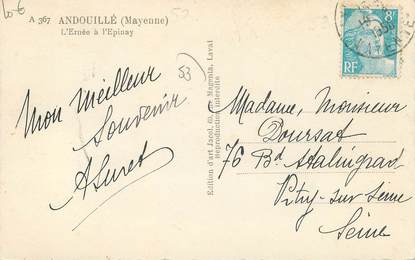 A 367 ANDOUILLÉ (Mayenne)
L'Ernée à l'Epinay
53
53
Mon Meilleur
Souvenir
Edition d'art Jacol, rue Magenta, Laval
Reproduction interdite
8F
RF
Madame, Monsieur
Poursat
76 Bd Stalingrad
Vitry-sur Seine
Seine